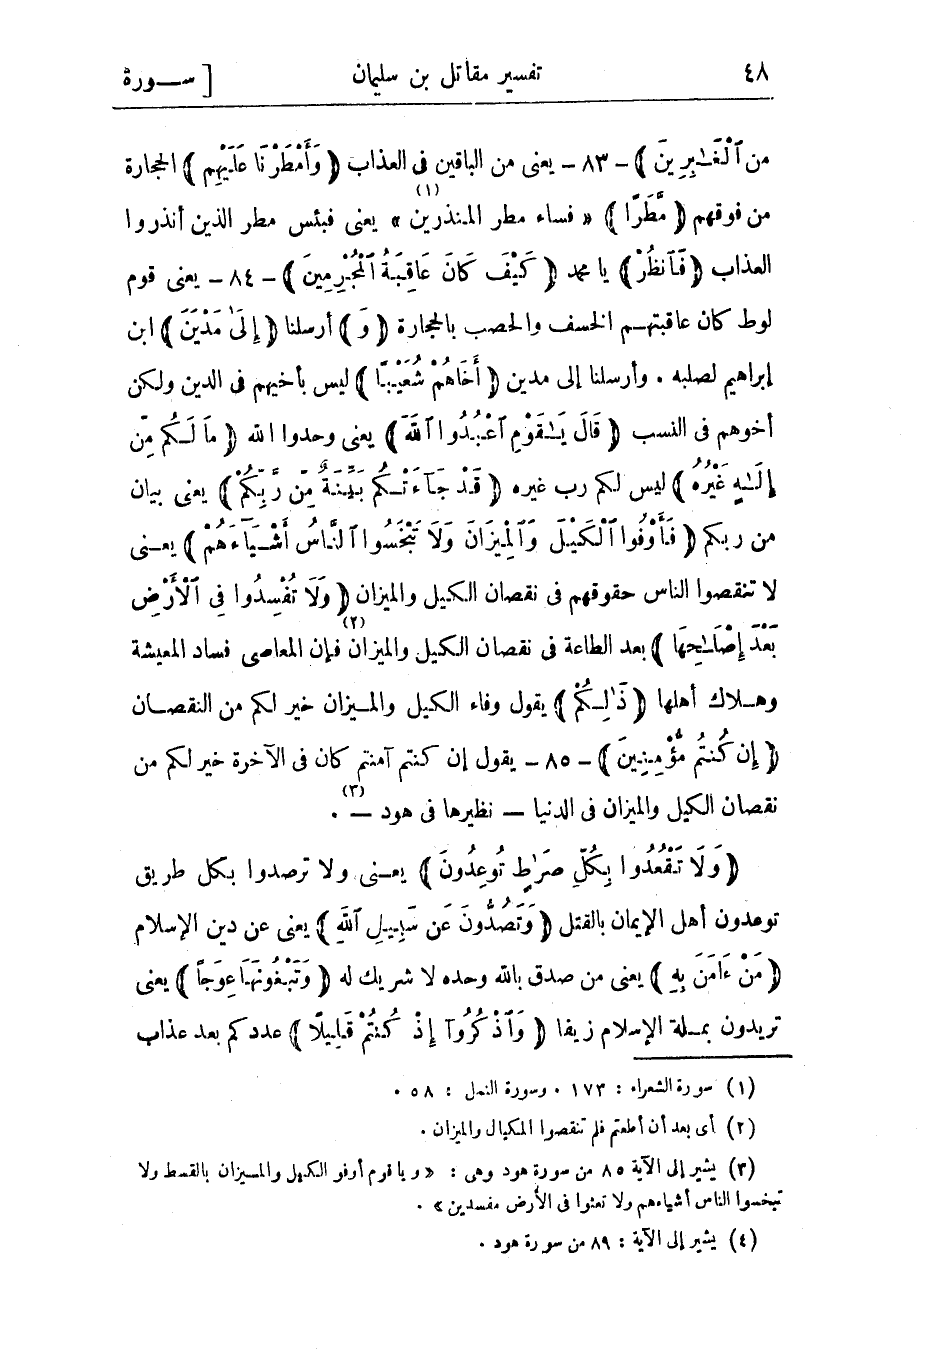 ٤٨ تفسير مقاتل بن سليمان [ ســورة
من ٱلْغَٰبِرِينَ ﴾ – ٨٣ – يعنى من الباقين فى العذاب ﴿ وَأَمْطَرْنَا عَلَيْهِم ﴾ الحجارة
من فوقهم ﴿ مَّطَرًا ﴾ « فساء مطر المنذرين (١) » يعنى فبئس مطر الذين أنذروا
العذاب ﴿ فَٱنظُرْ ﴾ يا محمد ﴿ كَيْفَ كَانَ عَاقِبَةُ ٱلْمُجْرِمِينَ ﴾ – ٨٤ – يعنى قوم
لوط كان عاقبتهـم الخسف والحصب بالحجارة ﴿ وَ ﴾ أرسلنا ﴿ إِلَىٰ مَدْيَنَ ﴾ ابن
إبراهيم لصلبه . وأرسلنا إلى مدين ﴿ أَخَاهُمْ شُعَيْبًا ﴾ ليس بأخيهم فى الدين ولكن
أخوهم فى النسب ﴿ قَالَ يَٰقَوْمِ ٱعْبُدُوا ٱللَّهَ ﴾ يعنى وحدوا الله ﴿ مَا لَكُم مِّن
إِلَٰهٍ غَيْرُهُ ﴾ ليس لكم رب غيره ﴿ قَدْ جَآءَتْكُم بَيِّنَةٌ مِّن رَّبِّكُمْ ﴾ يعنى بيان
من ربكم ﴿ فَأَوْفُوا ٱلْكَيْلَ وَٱلْمِيزَانَ وَلَا تَبْخَسُوا ٱلنَّاسَ أَشْيَآءَهُمْ ﴾ يعـنى
لا تنقصوا الناس حقوقهم فى نقصان الكيل والميزان ﴿ وَلَا تُفْسِدُوا فِى ٱلْأَرْضِ
بَعْدَ إِصْلَٰحِهَا ﴾ بعد الطاعة فى نقصان الكيل والميزان (٢) فإن المعاصى فساد المعيشة
وهـلاك أهلها ﴿ ذَٰلِكُمْ ﴾ يقول وفاء الكيل والمـيزان خير لكم من النقصـان
﴿ إِن كُنتُم مُّؤْمِنِينَ ﴾ – ٨٥ – يقول إن كنتم آمنتم كان فى الآخرة خير لكم من
نقصان الكيل والميزان فى الدنيا – نظيرها فى هود (٣) – .
﴿ وَلَا تَقْعُدُوا بِكُلِّ صِرَٰطٍ تُوعِدُونَ ﴾ يعـنى ولا ترصدوا بكل طريق
توعدون أهل الإيمان بالقتل ﴿ وَتَصُدُّونَ عَن سَبِيلِ ٱللَّهِ ﴾ يعنى عن دين الإسلام
﴿ مَنْ ءَامَنَ بِهِ ﴾ يعنى من صدق بالله وحده لا شريك له ﴿ وَتَبْغُونَهَا عِوَجًا ﴾ يعنى
تريدون بمـلة الإسلام زيفا ﴿ وَٱذْكُرُوٓا إِذْ كُنتُمْ قَلِيلًا ﴾ عددكم بعد عذاب
(١) سورة الشعراء : ١٧٣ . وسورة النمل : ٥٨ .
(٢) أى بعد أن أطعتم فلم تنقصوا المكيال والميزان .
(٣) يشير إلى الآية ٨٥ من سورة هود وهى : « ويا قوم أوفو الكيل والمـيزان بالقسط ولا
تبخسوا الناس أشياءهم ولا تعثوا فى الأرض مفسدين » .
(٤) يشير إلى الآية : ٨٩ من سورة هود .